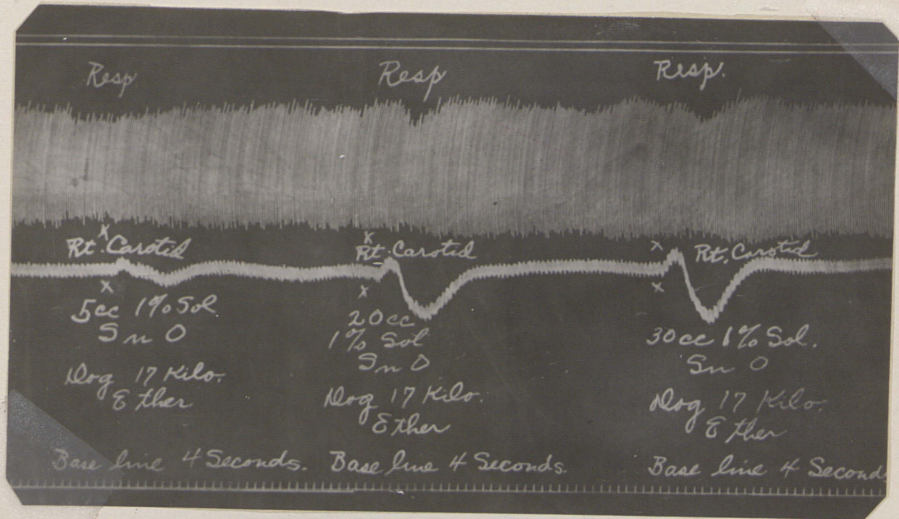 Resp
Resp
Resp.
x
Rt. Carotid
x
5cc 1% Sol.
Sn O
Dog 17 Kilo.
Ether
Base line 4 Seconds.
x
Rt. Carotid
x
20cc
1% Sol
Sn O
Dog 17 Kilo.
Ether
Base line 4 Seconds.
x
Rt. Carotid
x
30cc 1% Sol.
Sn O
Dog 17 Kilo.
Ether
Base line 4 Second